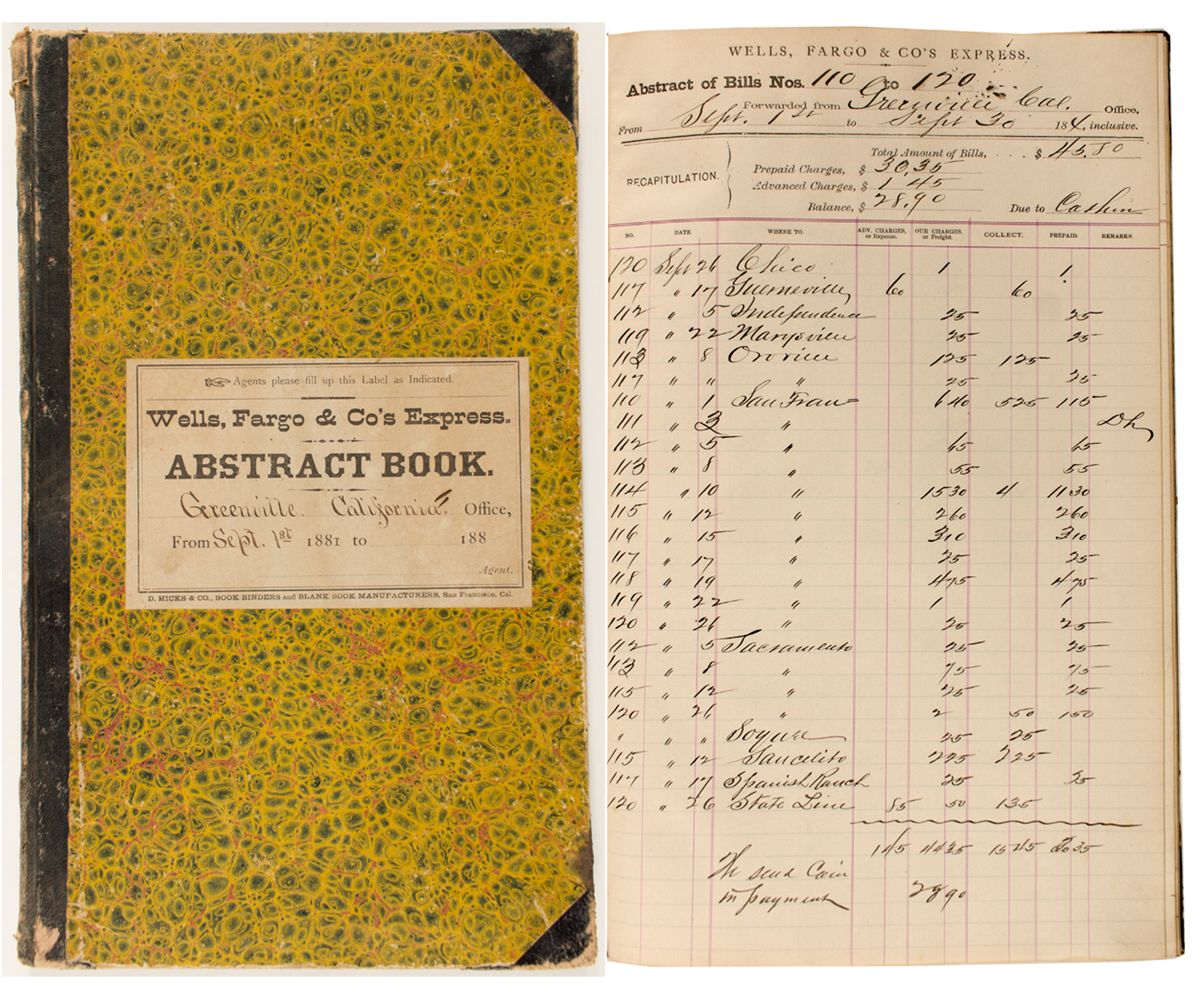 Agents please fill up this Label as Indicated.
Wells, Fargo & Co's Express.
ABSTRACT BOOK.
Greenville California. Office,
From Sept. 1st 1881 to 188
Agent.
D. HICKS & CO., BOOK BINDERS and BLANK BOOK MANUFACTURERS, San Francisco, Cal.
WELLS, FARGO & CO'S EXPRESS.
Abstract of Bills Nos. 110 to 120
Forwarded from Greenville Cal. Office,
From Sept. 1st to Sept 30 188, inclusive.
Total Amount of Bills, . . . . $ 45.80
RECAPITULATION.
Prepaid Charges, $ 30.35
Advanced Charges, $ 1 45
Balance, $ 28.90 Due to
NO. DATE. WHERE TO. ADV. CHARGES, or Expense. OUR CHARGES, or Freight. COLLECT. PREPAID. REMARKS.
120 Sept 26 Chico 1 1
117 " 17 Guerneville 60 60
112 " 5 Independence 25 25
119 " 22 Marysville 25 25
113 " 8 Oroville 125 125
117 " " " 25 25
110 " 1 San Fran 640 525 115
111 " 3 " Dh
112 " 5 " 65 65
113 " 8 " 55 55
114 " 10 " 1530 4 1130
115 " 12 " 260 260
116 " 15 " 310 310
117 " 17 " 25 25
118 " 19 " 475 475
119 " 22 " 1 1
120 " 26 " 25 25
112 " 5 Sacramento 25 25
113 " 8 " 75 75
115 " 12 " 25 25
120 " 26 " 2 50 150
" " " 25 25
115 " 12 Saucelito 225 225
117 " 17 Spanish Ranch 25 25
120 " 26 State Line 85 50 135
145 4435 1545 3035
send Coin
in payment 2890